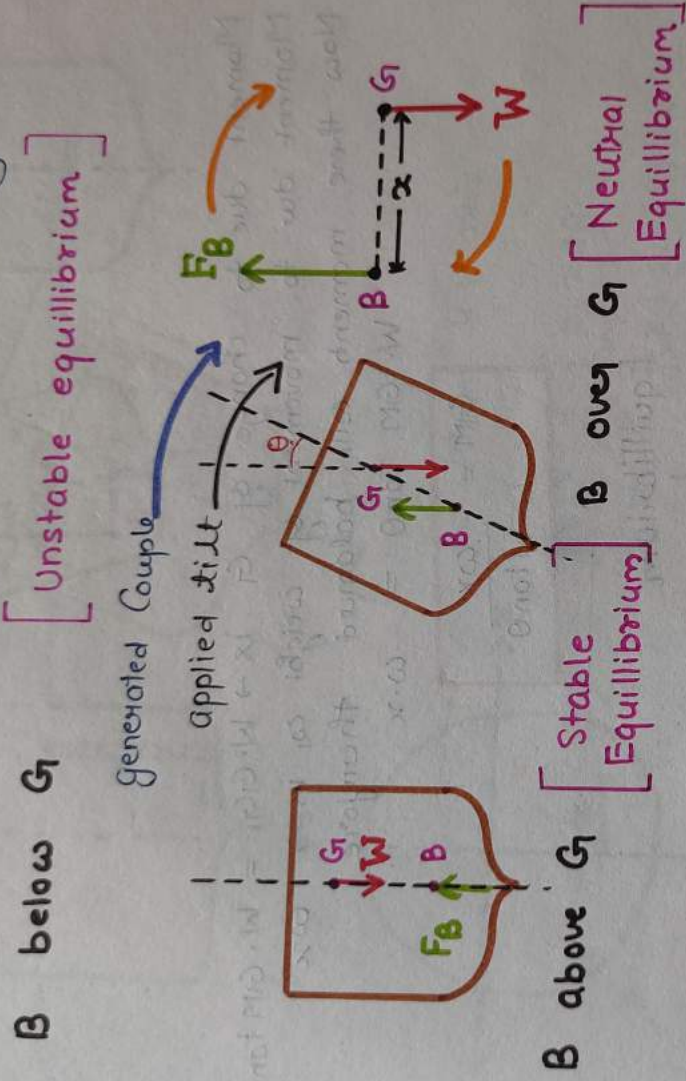 B below G [Unstable equillibrium]
Generated Couple
applied tilt
θ
G
W
F_B
B
G
B
F_B
B
x
G
W
B above G [Stable
Equillibrium]
B over G [Neutral
Equillibrium]